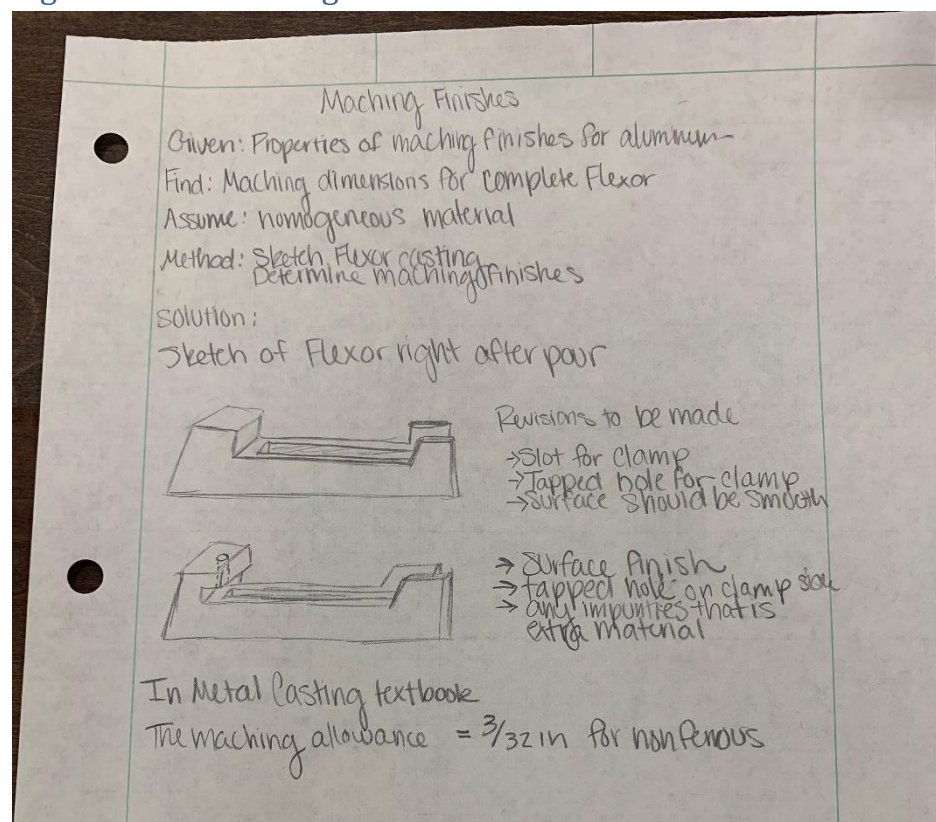 Maching Finishes
Given: Properties of maching finishes for aluminum
Find: Maching dimensions for complete Flexor
Assume: homogeneous material
Method: Sketch Flexor casting
Determine maching finishes
Solution:
Sketch of Flexor right after pour
Revisions to be made
→Slot for clamp
→Tapped hole for clamp
→Surface should be smooth
→ Surface finish
→ tapped hole on clamp side
→ any impurities that is
extra material
In Metal Casting textbook
The maching allowance = 3/32 in for non ferrous